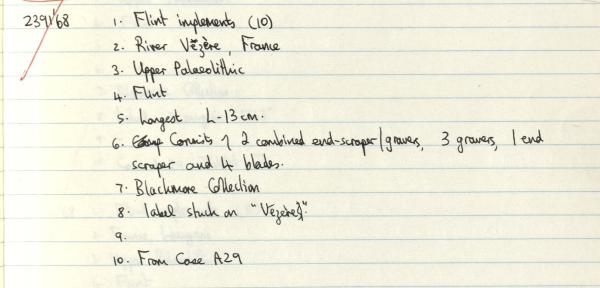 2391'68 1. Flint implements (10)
2. River Vézère, France
3. Upper Palaeolithic
4. Flint
5. Longest L-13cm.
6. Consists of 2 combined end-scraper/gravers, 3 gravers, 1 end
scraper and 4 blades.
7. Blackmore Collection
8. label stuck on "Vézère".
9.
10. From Case A29